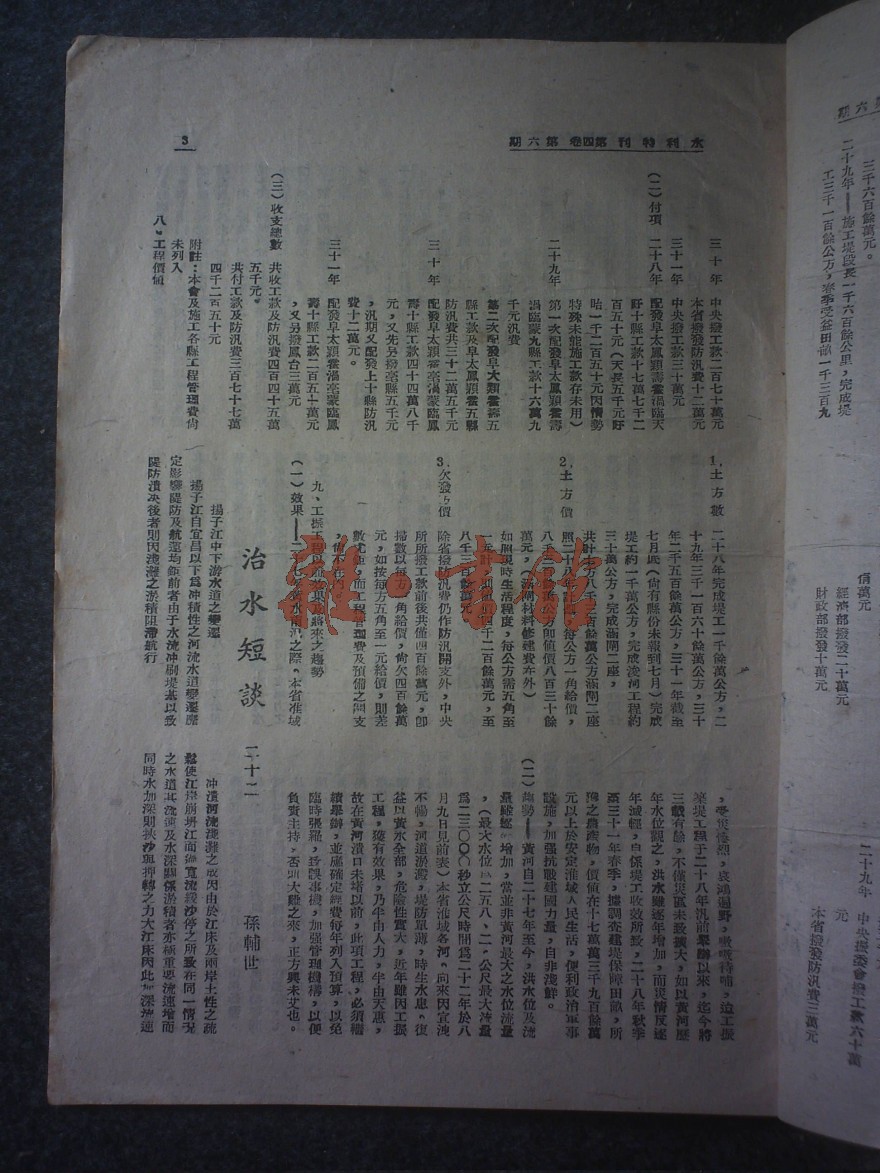 水利特刊 第四卷 第六期
3
三十年 中央撥工款二百七十萬元
本省撥發防汛費十二萬元
三十一年 中央撥工款三十萬元
(二)付項 二十八年 配發阜太顥壽雲渦臨天
盱十縣工款十七萬七千二
百五十元(天長五千元盱
哈一千二百五十元因情勢
特殊未能施工款存未用)
二十九年 第一次配發阜太鳳顥雲壽
渦臨蒙九縣工款十六萬九
千元汛費
第二次配發阜太顥雲壽五
縣工款及阜太鳳顥雲五縣
防汛費共三十二萬五千元
三十年 配發阜太顥雲亳渦蒙臨鳳
壽十縣工款四十四萬八千
元,又先另撥亳縣五千元
,汛期又配發上十縣防汛
費十二萬元。
三十一年 配發阜太顥雲渦亳蒙臨鳳
壽十縣工款二百五十萬元
,又另撥鳳台三萬元
(三)收支總數 共收工款及防汛費四百四十五萬
五千元。
共付工款及防汛費三百七十七萬
四千二百五十元
附註:本會及施工各縣工程管理費尙
未列入
八、工程價値
1.土方數 二十八年完成堤工一千餘萬公方,二
十九年三千一百六十餘萬公方,三十
年二千五百餘萬公方,三十一年截至
七月底(尙有縣份未報到七月)完成
堤工約一千萬公方,完成浚河工程約
三十萬公方,完成涵閘二座,
共計七千八百三十餘萬公方涵閘二座
2.土方價 照二十八年計,每公方一角給價,
八百三十萬公方卽值價八百三十餘
萬元,(涵閘材料修建費在外)
如照現時生活程度,每公方需五角至
一元計,則四千二百餘萬元,至
八千三百餘萬元
3.欠發方價 除省撥防汛費仍作防汛開支外,中央
所撥工款前後共僅四百餘萬元,卽
掃數以每方一角給價,尙欠四百餘萬
元,如按每方五角至一元給價,則差
數尤鉅,而工程管理費及預備之開支
,尙不在內
九、工振工程以前效果及將來之趨勢
(一)效果——二十七年黃水南汎之際,本省淮域
,受災慘烈,哀鴻遍野,嗷嗷待哺,迨工振
築堤工程于二十八年汛前舉辦以來,迄今將
三載有餘,不僅災區未致擴大,如以黃河歷
年水位觀之,洪水雖逐年增加,而災情反逐
年減輕,自係堤工收效所致,二十八年秋季
至三十一年春季,據調查建堤保障田畝,所
獲之農產物,價値在十七萬萬三千九百餘萬
元以上於安定淮域人民生活,便利政治軍事
設施,加强抗戰建國力量,自非淺鮮。
(二)趨勢——黃河自二十七年至今,洪水位及流
量雖逐年增加,當並非黃河最大之水位流量
,(最大水位爲二五八、二,公尺最大流量
爲二三〇〇〇秒立公尺時間爲二十二年於八
月九日見前表)本省淮域各河,向來因宣洩
不暢,河道淤澱,堤防單薄,時生水患,復
益以黃水全部,危險性實大,近年雖因工振
工程,獲有效果,乃半由人力,半由天惠,
故在黃河潰口未堵以前,此項工程,必須繼
續舉辦,並應確定經費每年列入預算,以免
臨時張羅,致誤事機,加强管理機構,以便
負責主持,否則大難之來,正方興未艾也。
治水短談 二十二 孫輔世
揚子江中下游水道之變遷
揚子江自宜昌以下爲冲積性之河流水道變遷靡
定影響隄防及航運均鉅前者由于水流冲刷堤基以致
隄防潰决後者則因淺灘之淤積阻滯航行
冲潰河流淺灘之成因由於江床及兩岸土性之疏
鬆使江岸崩坍江面綿寬流緩沙停之所致在同一情況
之水道其流速及水深關係淤積者亦極重要流速增而
同時水加深則挾沙與押轉之力大江床因此加深增速
第六期
三千六百餘萬元。
二十九年——施工堤段長一千六百餘公里,完成堤
工三千一百餘公方,春季受益田畝一千三百九
倩萬元
經濟部撥發二十萬元
財政部撥發十萬元
二十九年 中央振委會撥工款六十萬
元
本省撥發防汛費三萬元
雜·書館